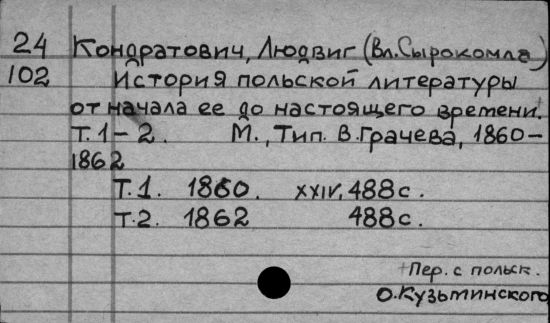 24 Кондратович, Людвиг (Вл. Сырокомля)
102 История польской литературы
от начала ее до настоящего времени.
Т. 1 – 2. М., Тип. В. Грачева, 1860–
1862
Т. 1. 1860. XXIV, 488 с.
Т. 2. 1862 488 с.
Пер. с польск.
О. Кузьминского